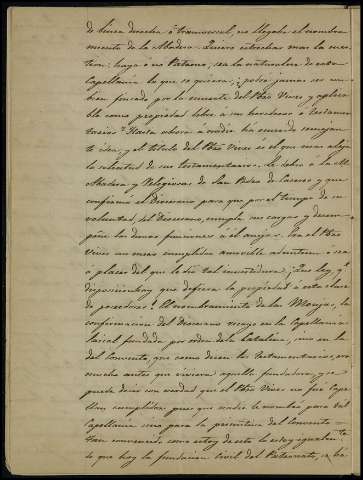 de linea derecha ó transversal, no llegaba el nombra
miento de la Abadesa. Quiero estrechar mas la cues
tion: haya ó no Patrono, sea la naturaleza de esta
Capellania la que se quiera; ¿podrá jamas ser un
bien por la muerte del Pbro Vives y aplica
ble como propiedad libre á sus herederos ó testamen
tarios? Hasta ahora á nadie há ocurrido semejan
te idea, y el título del Pbro Vives es el que mas aleja
la solicitud de sus testamentarios. Se debió á la
Abadesa y Religiosas de San Pedro de y que
confirmó el Diocesano para que por el tiempo de su
voluntad, del Diocesano, cumpla sus cargas y desem
peñe las demas funciones á él anejas. Era el Pbro
Vives un mero cumplidor amovible ad nutum ó sea
á placer del que le dió tal investidura; ¿Que ley y
disposicion hay que defiera la propiedad á esta clase
de poseedores? El nombramiento de las Monjas, la
confirmacion del Diocesano recayó en la Capellania
laical fundada por orden de la Catalina, no en la
del Convento, que como dicen los Testamentarios, era
mucho antes que viviera aquella fundadora, y se
puede decir con verdad que el Pbro Vives no fué Cape
llan cumplidor, pues que nadie le nombró para tal
Capellania como para la del Convento.
Tan convencido como estoy de esto lo estoy igualmen
te que hoy la fundacion civil del Patronato, es